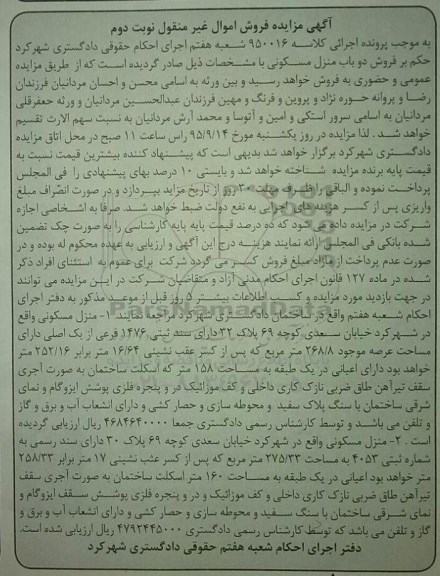 آگهی مزایده فروش اموال غیر منقول نوبت دوم
به موجب پرونده اجرائی کلاسه ۹۵۰۰۱۶ شعبه هفتم اجرای احکام حقوقی دادگستری شهرکرد
حکم بر فروش دو باب منزل مسکونی با مشخصات ذیل صادر گردیده است که از طریق مزایده
عمومی و حضوری به فروش خواهد رسید و بین ورثه به اسامی محسن و احسان مردانیان فرزندان
رضا و پروانه حوره نژاد و پروین و فرنگ و مهین فرزندان عبدالحسین مردانیان و ورثه جعفرقلی
مردانیان به اسامی سرور استکی و امین و آتوسا و محمد آرش مردانیان به نسبت سهم الارث تقسیم
خواهد شد. لذا مزایده در روز یکشنبه مورخ ۹۵/۹/۱۴ راس ساعت ۱۱ صبح در محل اتاق مزایده
دادگستری شهرکرد برگزار خواهد شد بدیهی است که پیشنهاد کننده بیشترین قیمت نسبت به
قیمت پایه برنده مزایده شناخته خواهد شد و بایستی ۱۰ درصد بهای پیشنهادی را فی المجلس
پرداخت نموده و الباقی را ظرف مهلت ۳۰ روز از تاریخ مزاید بپردازد و در صورت انصراف مبلغ
واریزی پس از کسر هزینه های اجرایی به نفع دولت ضبط خواهد شد. صرفا به اشخاصی اجازه
شرکت در مزایده داده می شود که ده درصد قیمت پایه کارشناسی را به صورت چک تضمین
شده بانکی فی المجلس ارائه نمایند هزینه درج این آگهی و ارزیابی به عهده محکوم له بوده و در
صورت عدم پرداخت از مازاد مبلغ فروش کسر می گردد شرکت برای عموم به استثنای افراد ذکر
شده در ماده ۱۲۷ قانون اجرای احکام مدنی آزاد و متقاضیان شرکت در این مزایده می توانند
در جهت بازدید مورد مزایده و کسب اطلاعات بیشتر ۵ روز قبل از موعد مذکور به دفتر اجرای
احکام شعبه هفتم واقع در ساختمان دادگستری شهرکرد مراجعه نمایند ۱- منزل مسکونی واقع
در شهرکرد خیابان سعدی کوچه ۶۹ پلاک ۳۲ دارای سند ثبتی ۱۴۷۶ فرعی از یک اصلی دارای
مساحت عرصه موجود ۲۶۸/۸ متر مربع که پس از کسر عقب نشینی ۱۶/۶۴ متر برابر ۲۵۲/۱۶ متر
خواهد بود دارای اعیانی در یک طبقه به مساحت ۱۵۸ متر که اسکلت ساختمان به صورت آجری
سقف تیرآهن طاق ضربی نازک کاری داخلی و کف موزائیک در و پنجره فلزی پوشش ایزوگام و نمای
شرقی ساختمان با سنگ پلاک سفید و محوطه سازی و حصار کشی و دارای انشعاب آب و برق و گاز
و تلفن می باشد و توسط کارشناس رسمی دادگستری جمعا ۴۶۸۴۶۴۰۰۰۰ ریال ارزیابی گردیده
است. ۲- منزل مسکونی واقع در شهرکرد خیابان سعدی کوچه ۶۹ پلاک ۳۰ دارای سند رسمی به
شماره ثبتی ۴۰۵۳ به مساحت ۲۷۵/۳۳ متر مربع که پس از کسر عقب نشینی ۱۷ متر برابر ۲۵۸/۳۳
متر خواهد بود اعیانی در یک طبقه به مساحت ۱۶۰ متر اسکلت ساختمان به صورت آجری سقف
تیرآهن طاق ضربی نازک کاری داخلی و کف موزائیک و در و پنجره فلزی پوشش سقف ایزوگام و
نمای شرقی ساختمان با سنگ سفید و محوطه سازی و حصار کشی و دارای انشعاب آب و برق و
گاز و تلفن می باشد که توسط کارشناس رسمی دادگستری ۴۷۹۲۴۴۵۰۰۰ ریال ارزیابی شده است.
دفتر اجرای احکام شعبه هفتم حقوقی دادگستری شهرکرد